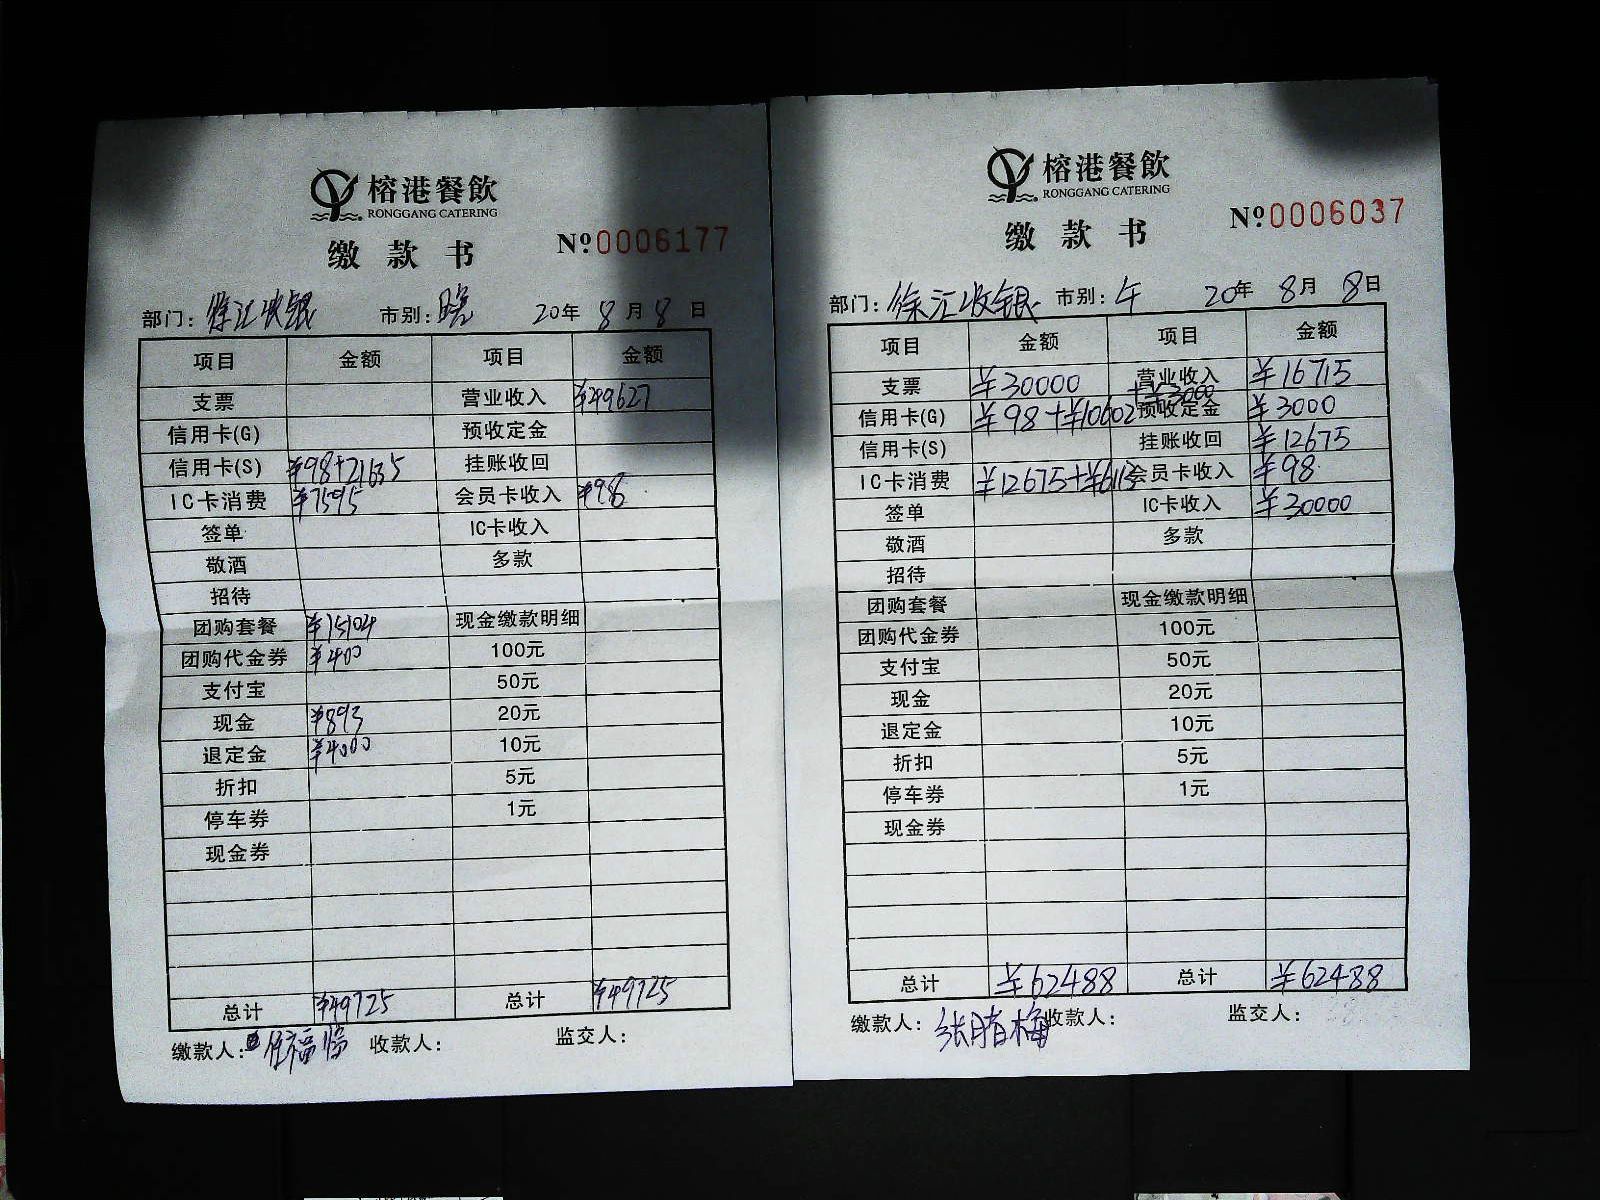 榕港餐飲
RONGGANG CATERING
缴款书
№0006177
部门: 徐汇收银 市别: 晚 20年 8月 8日
项目 金额 项目 金额
支票 营业收入 ¥49627
信用卡(G) 预收定金
信用卡(S) ¥98+21635 挂账收回
IC卡消费 ¥7595 会员卡收入 ¥98
签单 IC卡收入
敬酒 多款
招待
团购套餐 ¥15104 现金缴款明细
团购代金券 ¥400 100元
支付宝 50元
现金 ¥893 20元
退定金 ¥4000 10元
折扣 5元
停车券 1元
现金券
总计 ¥49725 总计 ¥49725
缴款人: 任福临 收款人: 监交人:
榕港餐飲
RONGGANG CATERING
缴款书
№0006037
部门: 徐汇收银 市别: 午 20年 8月 8日
项目 金额 项目 金额
支票 ¥30000 营业收入 ¥16715
信用卡(G) ¥98+¥10602+¥3000 预收定金 ¥3000
信用卡(S) 挂账收回 ¥12675
IC卡消费 ¥12675+¥6113 会员卡收入 ¥98
签单 IC卡收入 ¥30000
敬酒 多款
招待
团购套餐 现金缴款明细
团购代金券 100元
支付宝 50元
现金 20元
退定金 10元
折扣 5元
停车券 1元
现金券
总计 ¥62488 总计 ¥62488
缴款人: 张腈梅 收款人: 监交人: